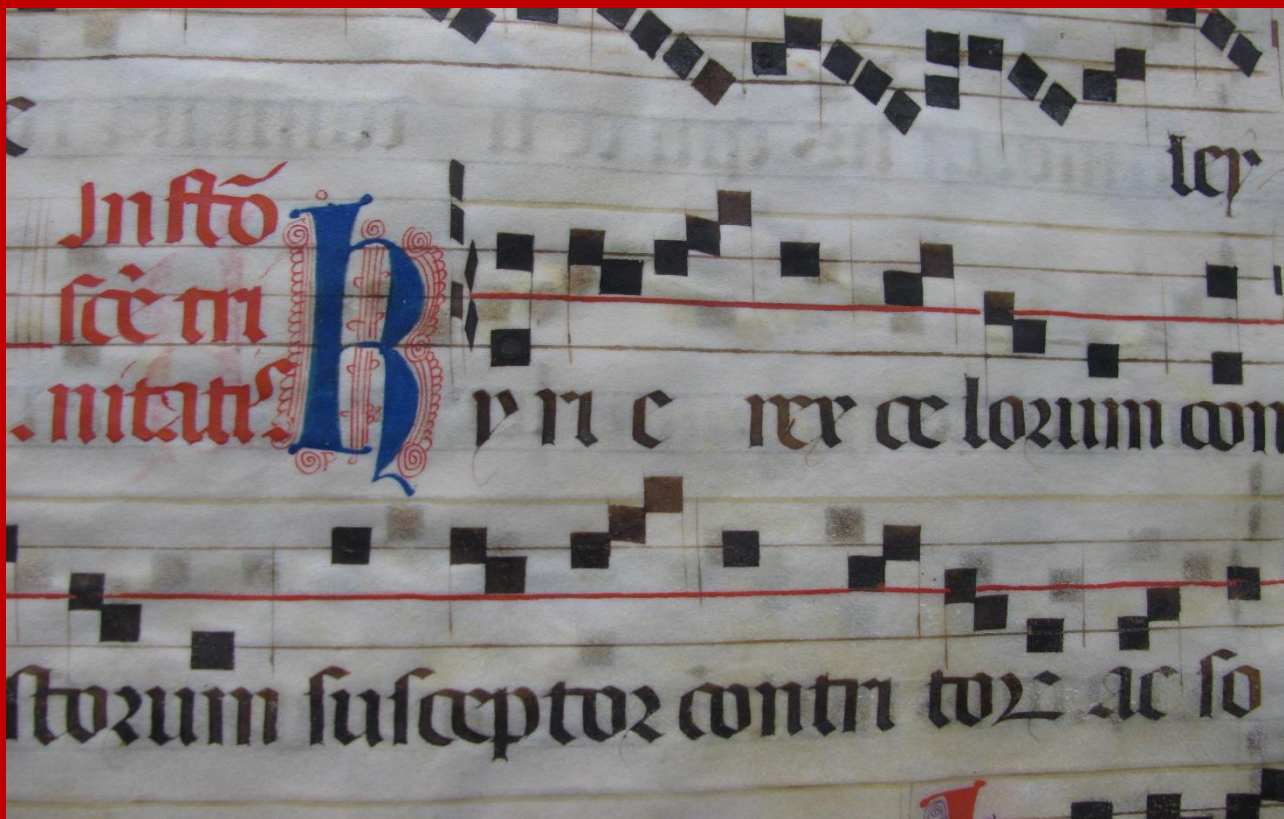 ley
In ſtō
ſcē tri
nitatis.
Kyri e rex ce lorum con
ſtorum ſuſceptor contri toꝝ ac ſo